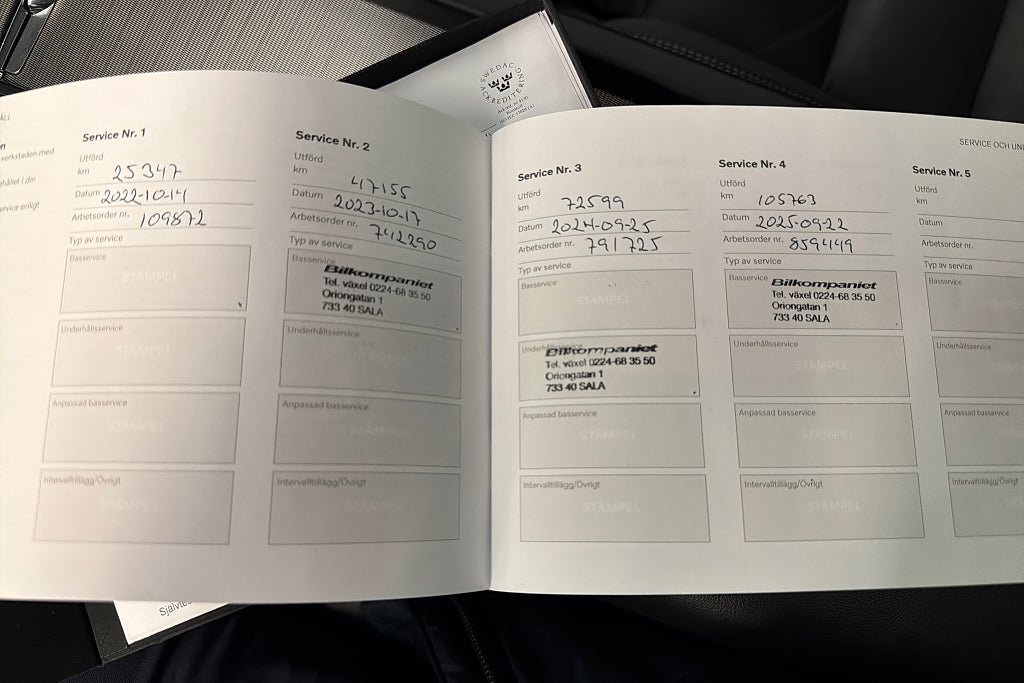 SWEDAC
ACKREDITERING
verkstaden med
Service Nr. 1
Utförd
km 25347
Datum 2022-10-14
Arbetsorder nr. 109872
Typ av service
Basservice
STÄMPEL
Underhållsservice
STÄMPEL
Anpassad basservice
STÄMPEL
Intervalltillägg/Övrigt
STÄMPEL
Service Nr. 2
Utförd
km 47155
Datum 2023-10-17
Arbetsorder nr. 742290
Typ av service
Basservice
Bilkompaniet
Tel. växel 0224-68 35 50
Oriongatan 1
733 40 SALA
Underhållsservice
STÄMPEL
Anpassad basservice
STÄMPEL
Intervalltillägg/Övrigt
STÄMPEL
Service Nr. 3
Utförd
km 72599
Datum 2024-09-25
Arbetsorder nr. 791725
Typ av service
Basservice
STÄMPEL
Underhållsservice
Bilkompaniet
Tel. växel 0224-68 35 50
Oriongatan 1
733 40 SALA
Anpassad basservice
STÄMPEL
Intervalltillägg/Övrigt
STÄMPEL
SERVICE OCH UN
Service Nr. 4
Utförd
km 105763
Datum 2025-09-22
Arbetsorder nr. 859449
Typ av service
Basservice
Bilkompaniet
Tel. växel 0224-68 35 50
Oriongatan 1
733 40 SALA
Underhållsservice
STÄMPEL
Anpassad basservice
STÄMPEL
Intervalltillägg/Övrigt
STÄMPEL
Service Nr. 5
Utförd
km
Datum
Arbetsorder nr.
Typ av service
Basservice
Underhållsservice
Anpassad basservice
Intervalltillägg/Övrigt